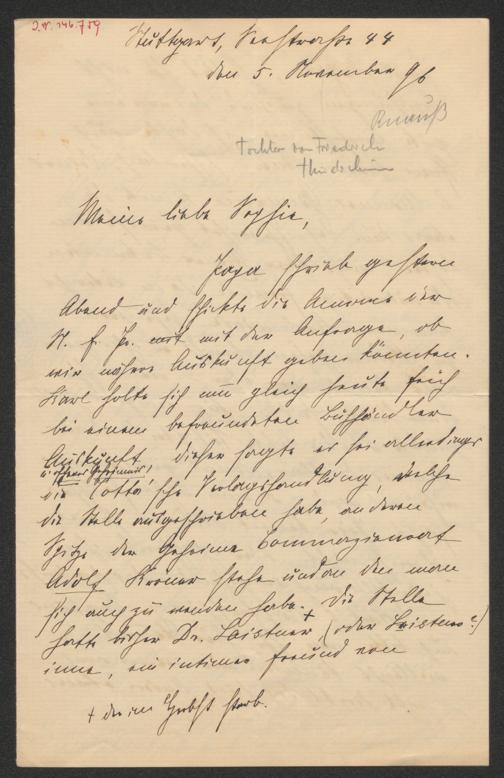 J.N. 146.759
Stuttgart, Seestraße 44
den 5. November 96
Tochter von Friedrich
Meine liebe Sophie,
schrieb gestern
Abend und schickte die Annonce der
N. f. Pr. mit der Anfrage, ob
wir nähere Auskunft geben könnten.
Karl holte sich nun gleich heute früh
bei einem befreundeten Buchhändler
Auskunft, dieser sagte es sei allerdings
die Cotta'sche Verlagshandlung, welche
die Stelle ausgeschrieben habe, an deren
Spitze der Geheime Commerzienrat
Adolf Kröner stehe und an den man
sich auch zu wenden habe. + Die Stelle
hatte bisher Dr. Laistner (oder Leistner?)
inne, ein intimer Freund von
+ der im Herbst starb.